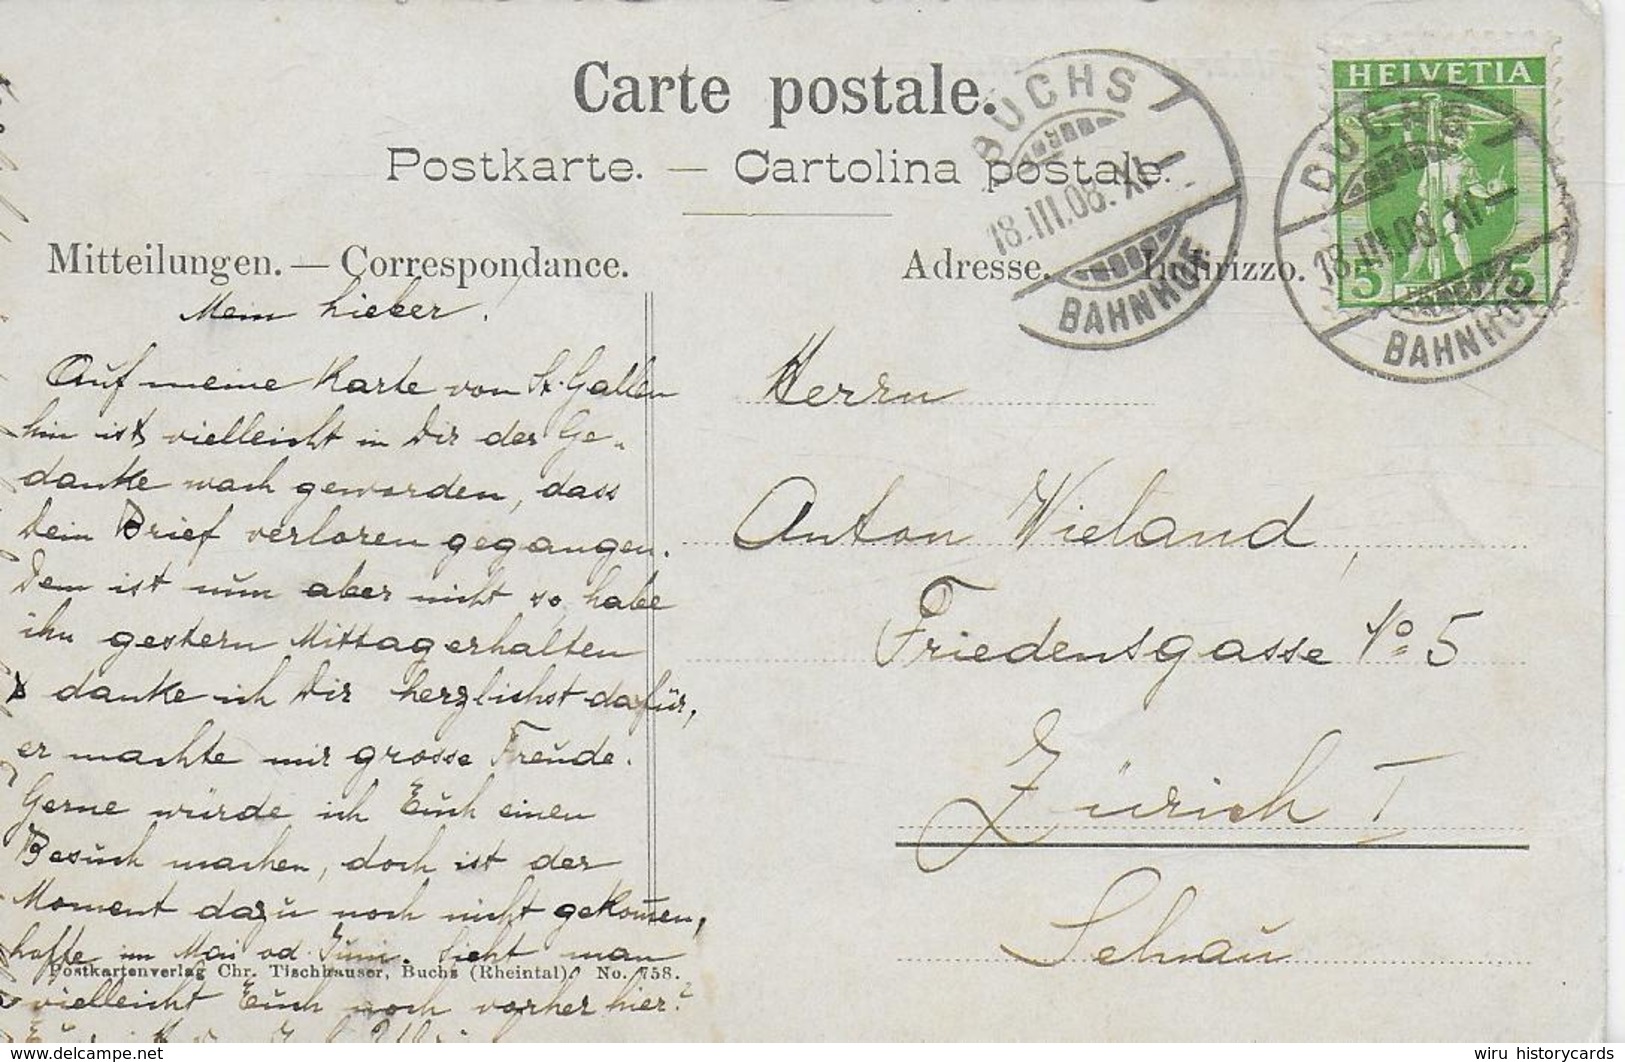 Carte postale.
Postkarte. — Cartolina postale.
Mitteilungen. — Correspondance.
Adresse. Indirizzo.
HELVETIA
5 5
BUCHS
18.III.08. XI
BAHNHOF
BUCHS
18.III.08. XI
BAHNHOF
Mein Lieber!
Auf meine Karte von St. Gallen
hin ist vielleicht in Dir der Ge-
danke wach geworden, dass
Dein Brief verloren gegangen.
Dem ist nun aber nicht so, habe
ihn gestern Mittag erhalten
danke ich Dir herzlichst dafür,
er machte mir grosse Freude.
Gerne würde ich Euch einen
Besuch machen, doch ist der
Moment dazu noch nicht gekom̄en,
hoffe im Mai od. Juni. Sieht man
vielleicht Euch noch vorher hier?
Postkartenverlag Chr. Tischhauser, Buchs (Rheintal). No. 758.
Herrn
Anton Wieland,
Friedensgasse No 5
Zürich I
Selnau
wiru historycards
www.delcampe.net